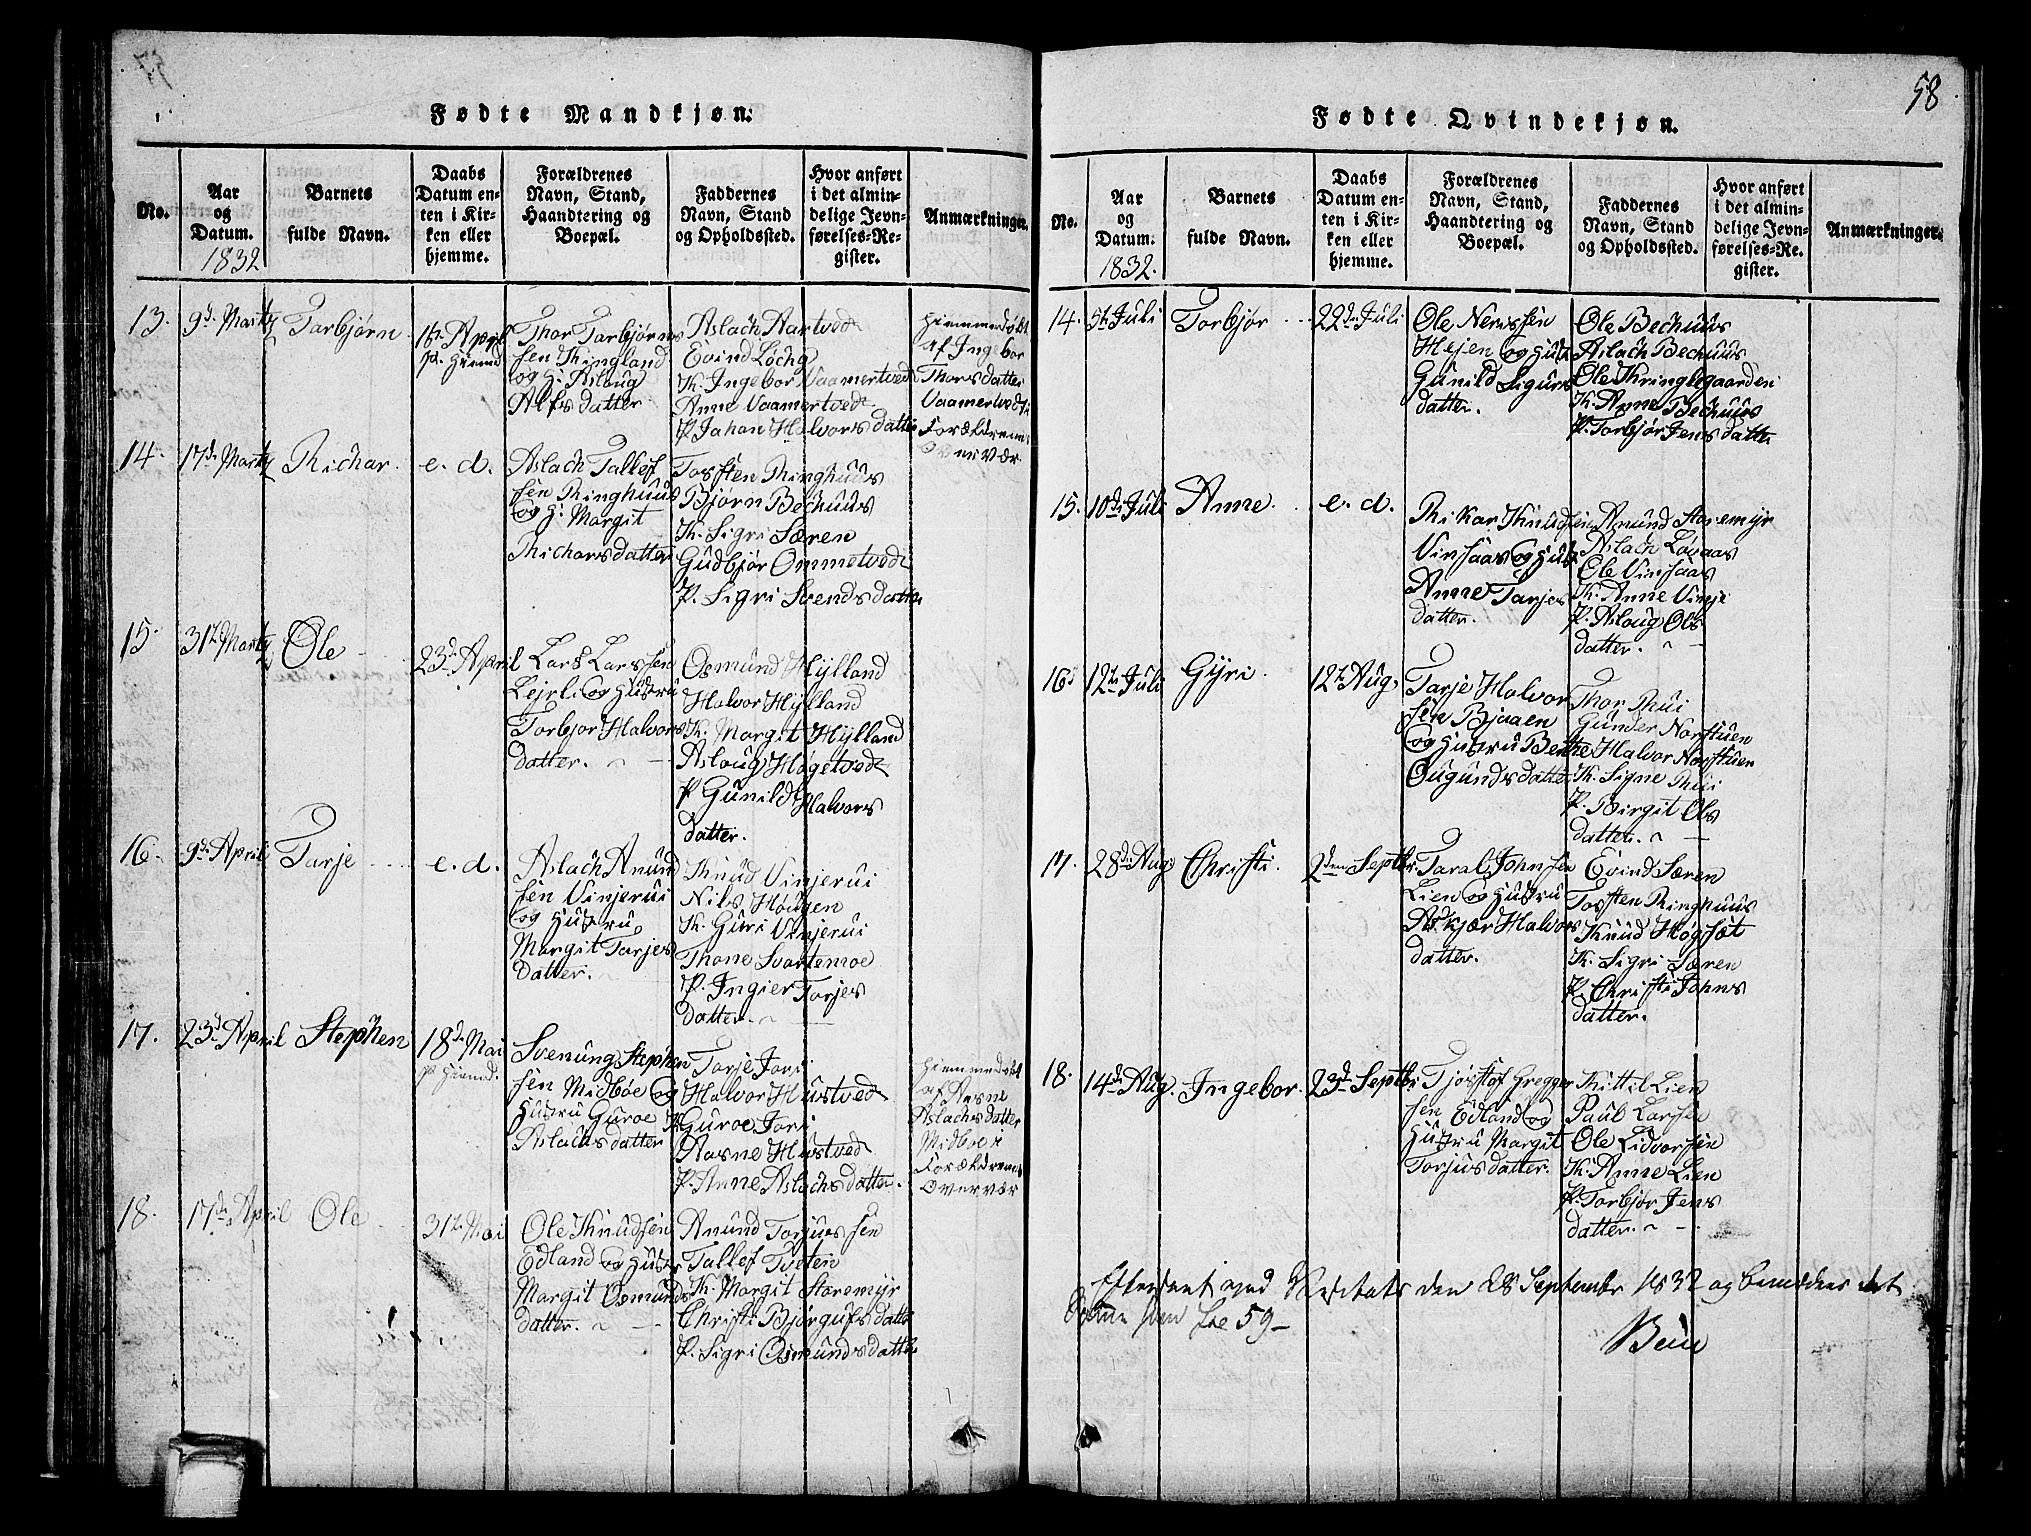 58
Fødte Mandkjøn.
No.
Aar
og
Datum.
1832
Barnets
fulde Navn.
Daabs
Datum en-
ten i Kir-
ken eller
hjemme.
Forældrenes
Navn, Stand,
Haandtering og
Boepæl.
Faddernes
Navn, Stand
og Opholdssted.
Hvor anført
i det almin-
delige Jevn-
førelses-Re-
gister.
Anmærkninger.
13. 9d. Martz Tarbjørn 16t. April
p. Hiemd
Thor Tarbjørns
sen Kingland
og H: Aslaug
Alfs datter.
Aslach Aartvedt
Evind Locha
K. Ingebor Vaamertvedt
Anne Vaamertvedt
P. Johan Halvors datter
Hiemmedøbt
af Ingebor
Thorsdatter
Vaamertvedt i
Forældrenes
Overvær
14. 17d. Martz Richar. e. d.
Aslach Tallef
sen Ringhuus
og H: Margit
Richarsdatter
Torsten Ringhuus
Bjørn Bechuus
K. Sigri Særen
Gudbjør Ommetvedt
P. Sigri Svends datter
15. 31t. Martz Ole 23d. April
Lars Larssen
Lejrli og Hustru
Torbjør Halvors
datter.
Osmund Hylland
Halvor Hylland
K. Margit Hylland
Aslaug Høgetvedt
P. Gunild Halvors
datter.
16. 9d. April Tarje e. d.
Aslach Anund
sen Vinjerui
og Hustru
Margit Tarjes
datter.
Knud Vinjerui
Nils Hougen
K. Guri Vinjerui
Thone Svartemoe
P. Ingier Torjes
datter.
17. 23d. April Stephen 18d. Mai
p. Hiemd.
Svenung Stephen
sen Midbøe og
Hustru Guroe
Aslachsdatter
Tarje Jori
Halvor Hustvedt
K. Guroe Jori
Aasne Hustvedt
P. Anne Aslachsdatter.
Hiemmedøbt
af Aasne
Aslachsdatter
Midboe i
Forældrenes
Overvær
18. 17de. April Ole 31t. Mai
Ole Knudsen
Edland og Hustr
Margit Osmunds
datter.
Anund Torjussen
Tallef Tveten
K. Margit Staremyr
Christi Bjørgufs datter
P. Sigri Osmundsdatter
Fødte Qvindekjøn.
No.
Aar
og
Datum.
1832.
Barnets
fulde Navn.
Daabs
Datum en-
ten i Kir-
ken eller
hjemme.
Forældrenes
Navn, Stand,
Haandtering og
Boepæl.
Faddernes
Navn, Stand
og Opholdssted.
Hvor anført
i det almin-
delige Jevn-
førelses-Re-
gister.
Anmærkninger.
14. 5t. Juli Torbjør 22d. Juli
Ole Nerissen
Hejen og Hust
Gunild Sigurs
datter.
Ole Bechuus
Aslach Bechuus
Ole Kringlegaarden
K. Anne Bechuus
P. Torbjør Jensdatter
15. 10d. Juli Anne. e. d.
Rikar Knudsen
Vinsaas og Hust
Anne Tarjes
datter.
Anund Staremyr
Aslach Løvaas
Ole Vinsaas
K. Anne Vinje
P. Aslaug Ols
datter.
16. 12te. Juli Gyri. 12t. Aug.
Tarje Halvor
sen Bjaaen
og Hustru Benthe
Ougunds datter
Thor Rui
Gunder Norstuen
Halvor Norstuen
K. Signe Rui
P. Birgit Ols
datter.
17. 28d. Aug. Christi. 2den Septbr.
Taral Johnsen
Lien og Hustru
Askjær Halvors
datter.
Evind Særen
Torsten Ringhuus
Knud Høgsæt
K. Sigri Særen
P. Christi Johns
datter.
18. 14d. Aug. Ingebor. 23d. Septbr
Tjostof Gregger
sen Edland og
Hustru Margit
Torjusdatter.
Kittil Lien
Paul Larsen
Ole Lidvorsen
K. Anne Lien
P. Torbjør Jens
datter.
Efterseet ved Visitats den 28 September 1832 og bemærkes det
samme som Side 59